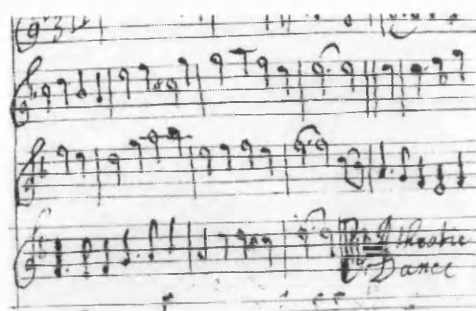 Theatre
Dance